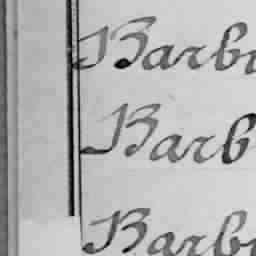 Barbi
Barb
Barbi